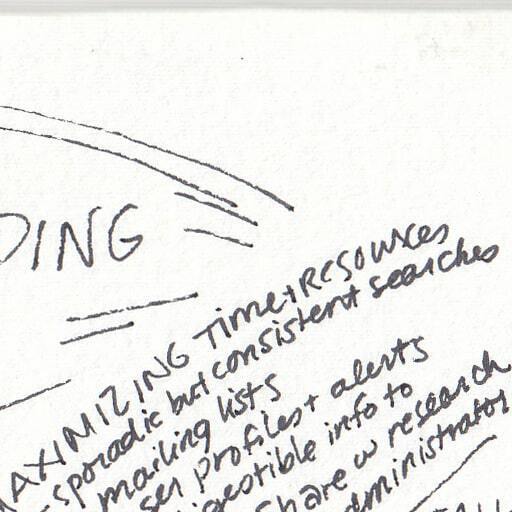 DING
MAXIMIZING Time + RESOURCES
- sporadic but consistent searches
mailing lists
set profiles + alerts
digestible info to
share w research
administrator